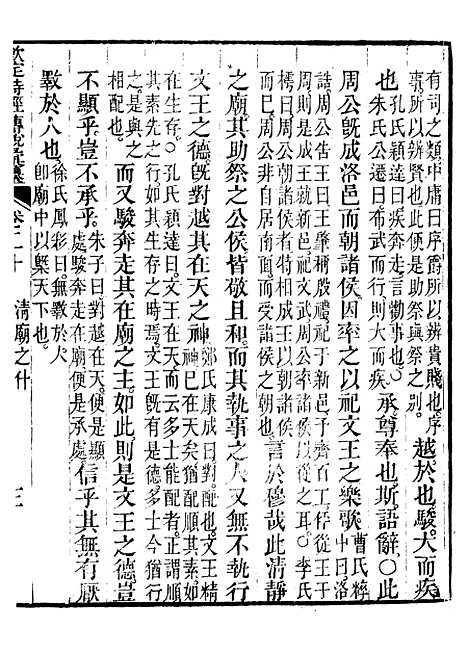 有司之類中庸曰序爵所以辨貴賤也序
事所以辨賢也此便是助祭與祭之别
越於也駿大而疾
也孔氏穎達曰疾奔走言勸事也
朱氏公遷曰布武而行則大而疾
承尊奉也斯語辭○此
周公旣成洛邑而朝諸侯因率之以祀文王之樂歌
曹氏粹中曰
誥周公告王曰王肇稱殷禮祀于新邑予齊百工伻從王于
周則是成王就新邑祀文武周公實率百官以從○李氏
樗曰周公朝諸侯者特相成王以朝諸侯
耳周公非自居南面而受諸侯之朝也
言於穆哉此清靜
之廟其助祭之公侯皆敬且和而其執事之人又無不執行
文王之德旣對越其在天之神
鄭氏康成曰對配也
文王已在天矣猶配順其素如
在生存○孔氏穎達曰文王在天而云多士能配者正謂順
其素先之行如其生存之時焉文王旣有是德多士今猶行
之是與之
相配也
而又駿奔走其在廟之主如此則是文王之德豈
不顯乎豈不承乎
朱子曰對越在天便是顯
處駿奔走在廟便是承處
信乎其無有厭
斁於人也
徐氏鳳彩曰無斁於人
卽廟中以槩天下也
欽定詩經傳說彙纂
卷二十
清廟之什
三